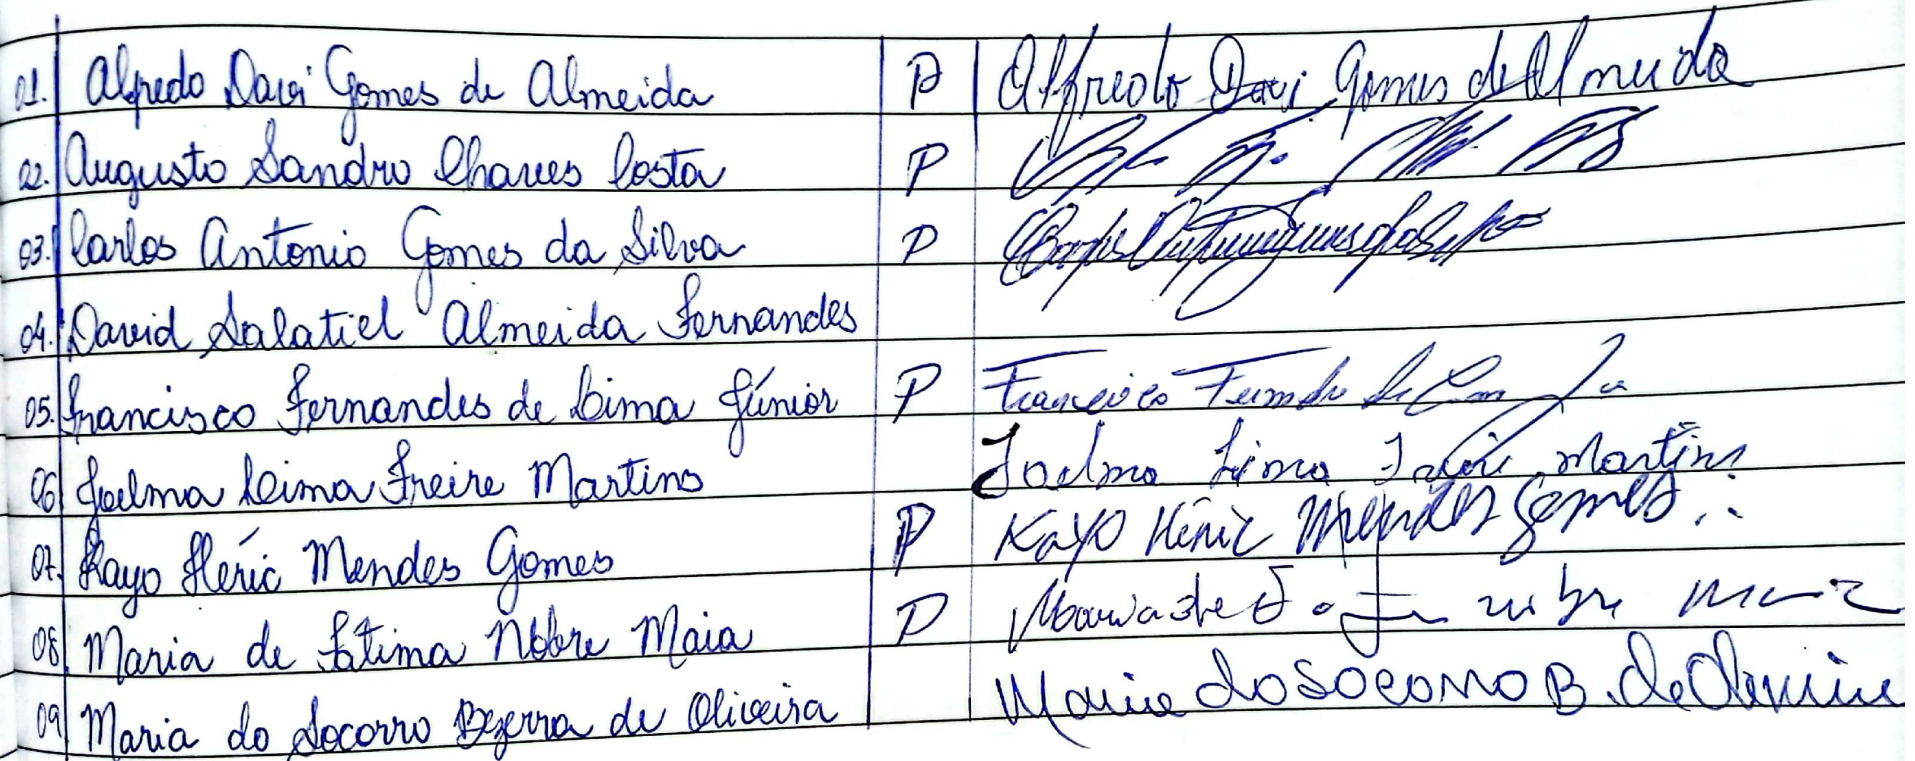 01. Alfredo Davi Gomes de Almeida P Alfredo Davi Gomes de Almeida
02. Augusto Sandro Chaves Costa P
03. Carlos Antonio Gomes da Silva P
04. David Salatiel Almeida Fernandes
05. Francisco Fernandes de Lima Júnior P Francisco
06 Joelma Leima Freire Martins Joelma Lima Freire Martins
07. Kayo Héric Mendes Gomes P Kayo Héric Mendes Gomes
08. Maria de Fátima Nobre Maia P Maria de
09 Maria do Socorro Bezerra de Oliveira Maria do Socorro B. de Oliveira